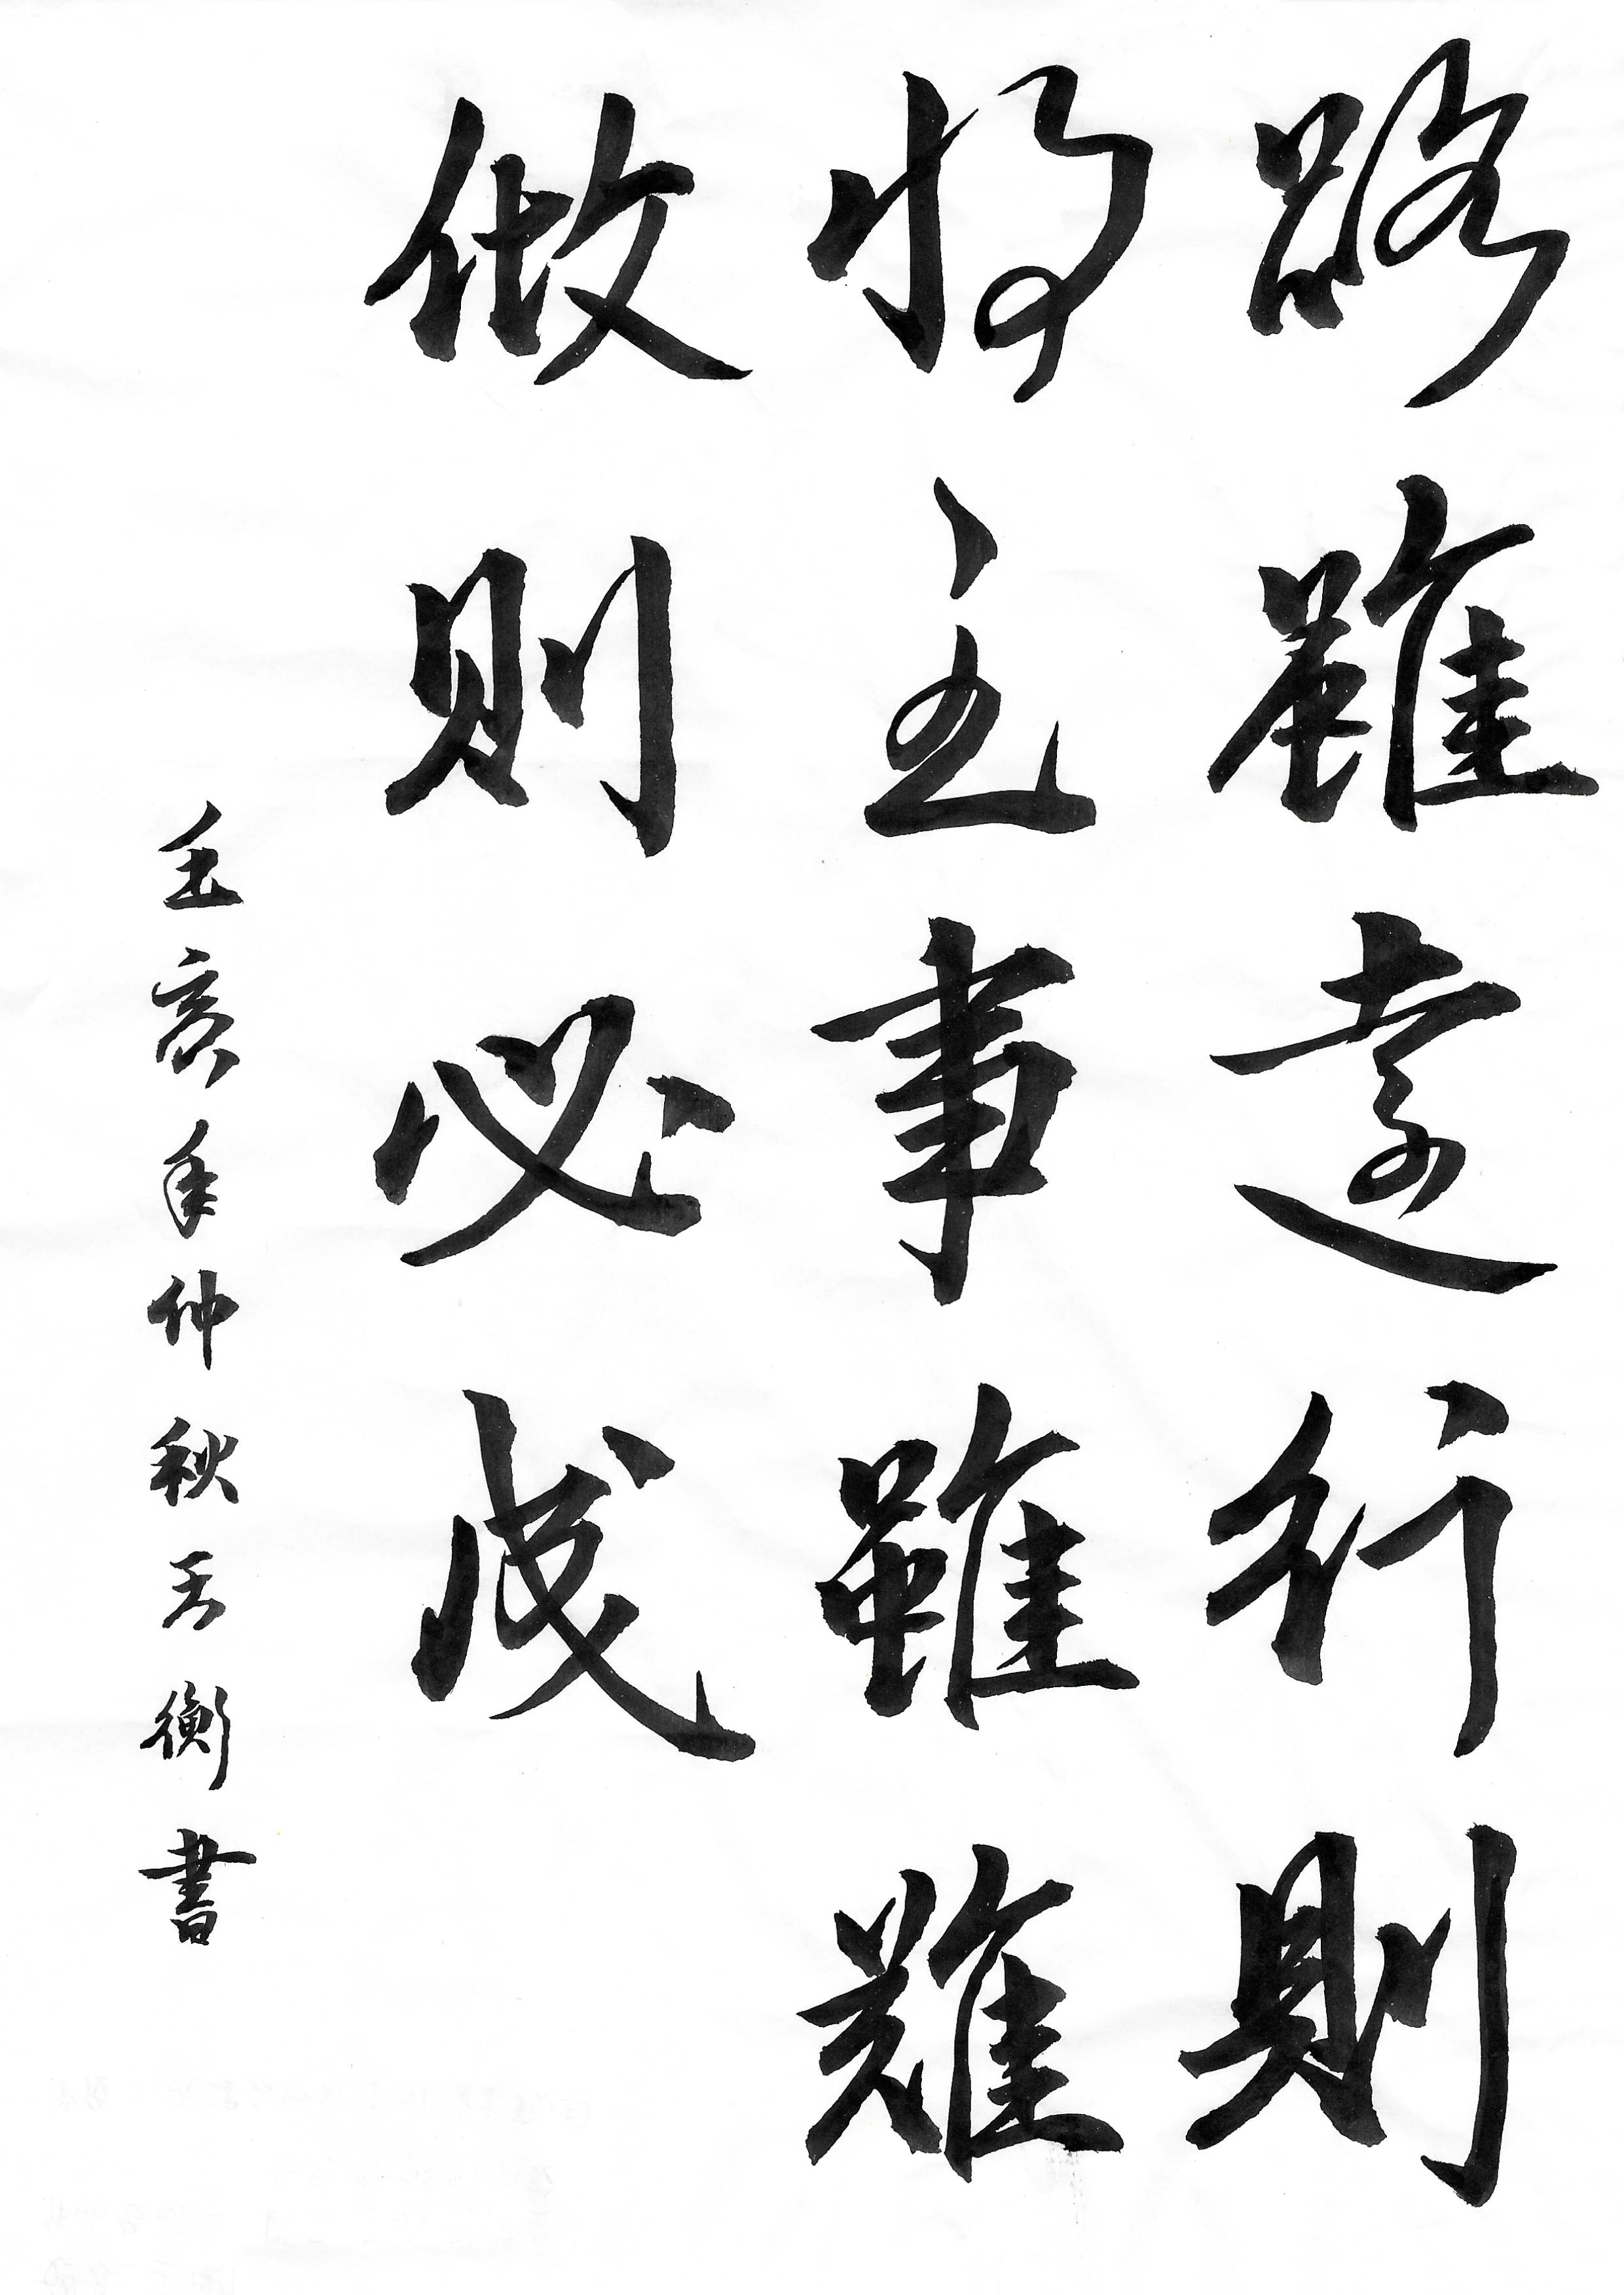 路雖遠行則
將至事雖難
做則必成
壬亥年仲秋衡書